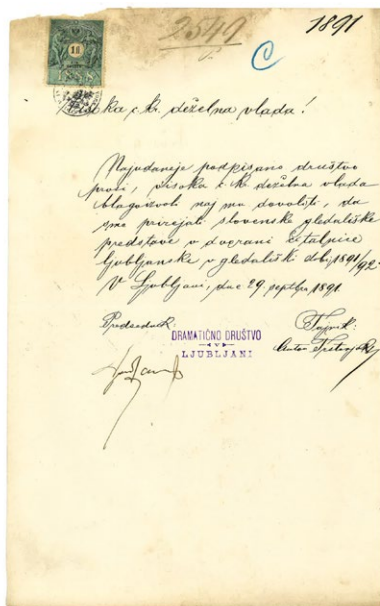 2549
1891
C
Visoka c. kr. deželna vlada!
Najudaneje podpisano društvo
prosi, visoka c. kr. deželna vlada
blagoizvoli naj mu dovoliti, da
sme prirejati slovenske gledališke
predstave v dvorani čitalnice
ljubljanske v gledališki dobi 1891/92.
V Ljubljani, dne 29. septbr. 1891.
Predsednik:
Tajnik:
DRAMATIČNO DRUŠTVO
V
LJUBLJANI
Anton Trstenjak